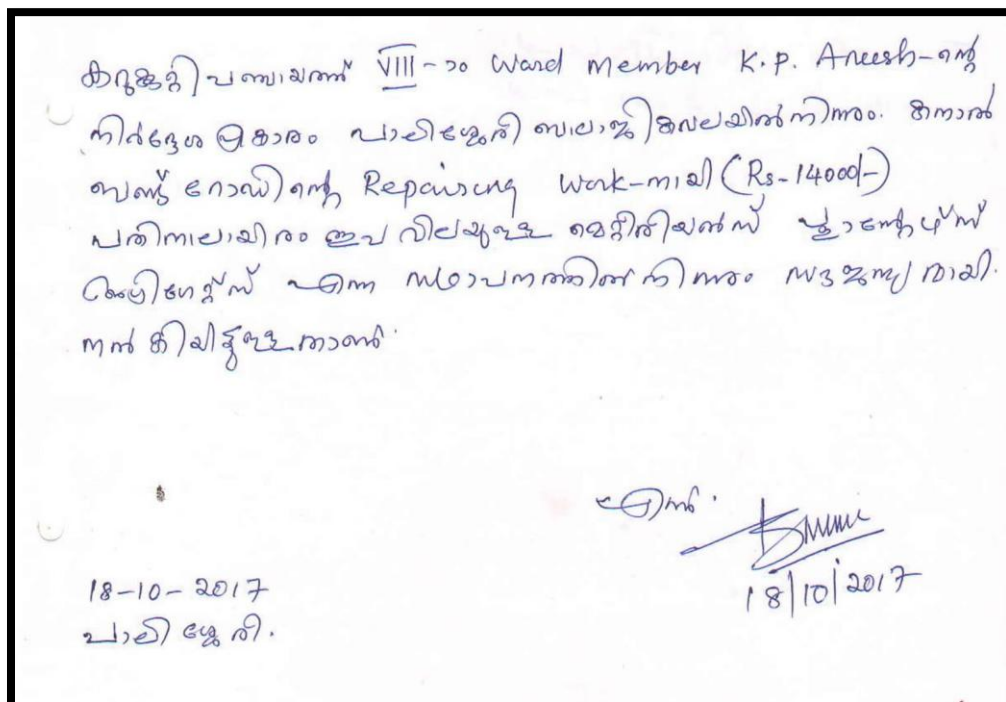 കറുകുറ്റി പഞ്ചായത്ത് VIII-ാം Ward Member K.P. Aneesh-ന്റെ
നിർദ്ദേശ പ്രകാരം പാലിശ്ശേരി ബാലാജി കവലയിൽ നിന്നും. കനാൽ
ബണ്ട് റോഡിന്റെ Repairing Work-നായി (Rs-14000/-)
പതിനാലായിരം രൂപ വിലയുള്ള മെറ്റീരിയൽസ്
എന്ന സ്ഥാപനത്തിൽ നിന്നും സൗജന്യമായി
നൽകിയിട്ടുള്ളതാണ്.
എന്ന്.
18/10/2017
18-10-2017
പാലിശ്ശേരി.